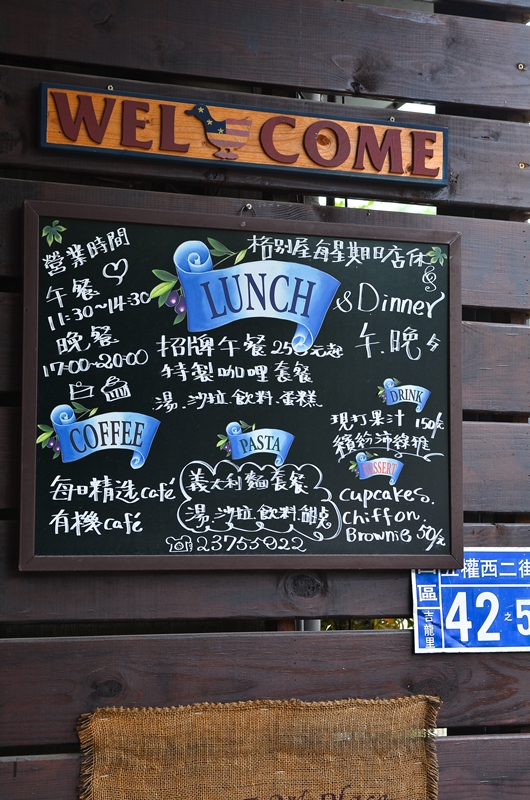 WELCOME
營業時間
午餐
11:30~14:30
晚餐
17:00~20:00
格別屋每星期日店休
LUNCH
& Dinner
午.晚
招牌午餐250元起
特製咖哩套餐
湯.沙拉.飲料.蛋糕
DRINK
現打果汁 150/元
繽紛沛綠雅
DESSERT
Cupcakes.
Chiffon.
Brownie 50/元
COFFEE
每日精选café
有機café
PASTA
義大利麵套餐
湯.沙拉.飲料.甜点
23755922
權西二街
區
吉龍里
42之5